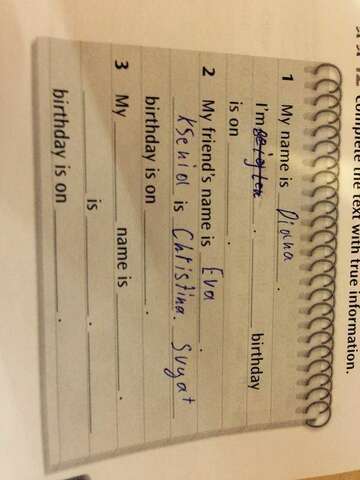 Complete the text with true information.
1 My name is Diana .
I'm . birthday
is on .
2 My friend's name is Eva .
Ksenia is Christina. Svyat
birthday is on .
3 My name is
is .
birthday is on .